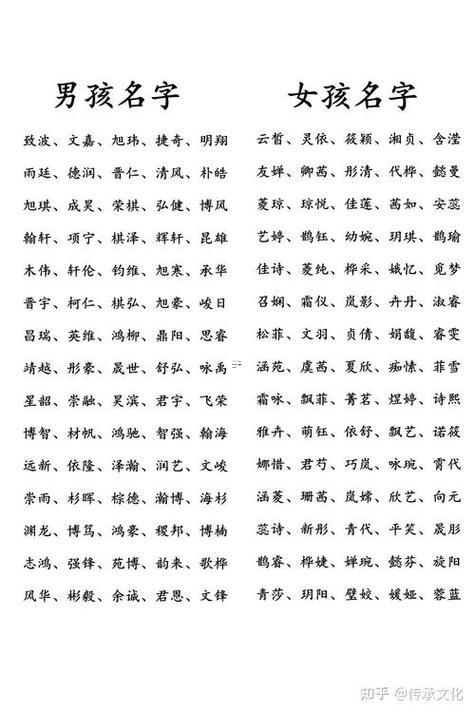 男孩名字
致波、文嘉、旭玮、捷奇、明翔
雨廷、德润、晋仁、清风、朴皓
旭琪、成昊、荣棋、弘健、博风
翰轩、项宁、棋泽、辉轩、昆雄
木伟、轩伦、钧维、旭寒、承华
晋宇、柯仁、棋弘、旭豪、峻日
昌瑞、英维、鸿柳、鼎阳、思睿
靖越、彤豪、晟世、舒弘、咏禹
星韶、崇融、昊滨、君宇、飞荣
博智、材帆、鸿驰、智强、翰海
远新、依隆、泽瀚、润艺、文峻
崇雨、杉晖、棕德、瀚博、海杉
渊龙、博笃、鸿豪、稷邦、博楠
志鸿、强锋、苑博、韵来、歌桦
风华、彬毅、余诚、君恩、文锋
女孩名字
云皙、灵依、筱颖、湘贞、含滢
友婵、卿茜、彤清、代桦、懿曼
菱琼、琼悦、佳莲、茜如、安蕊
艺婷、鹊钰、幼婉、玥琪、鹊瑜
佳诗、菱纯、桦采、娥忆、觅梦
召娴、霜仪、岚影、卉丹、淑睿
松菲、文羽、贞倩、娟馥、睿雯
涵苑、虞茜、夏欣、痴愫、菲雪
霜咏、飘菲、菁茗、煜婷、诗熙
雅卉、萌钰、依舒、飘艺、诺筱
娜惜、君芍、巧岚、咏琬、霄代
涵菱、珊茜、岚嫣、欣艺、向元
蕊诗、新彤、青代、平笑、晟彤
鹊睿、桦婕、婵琬、懿芬、旋阳
青莎、玥阳、璧姣、媛娅、蓉蓝
知乎 @传承文化